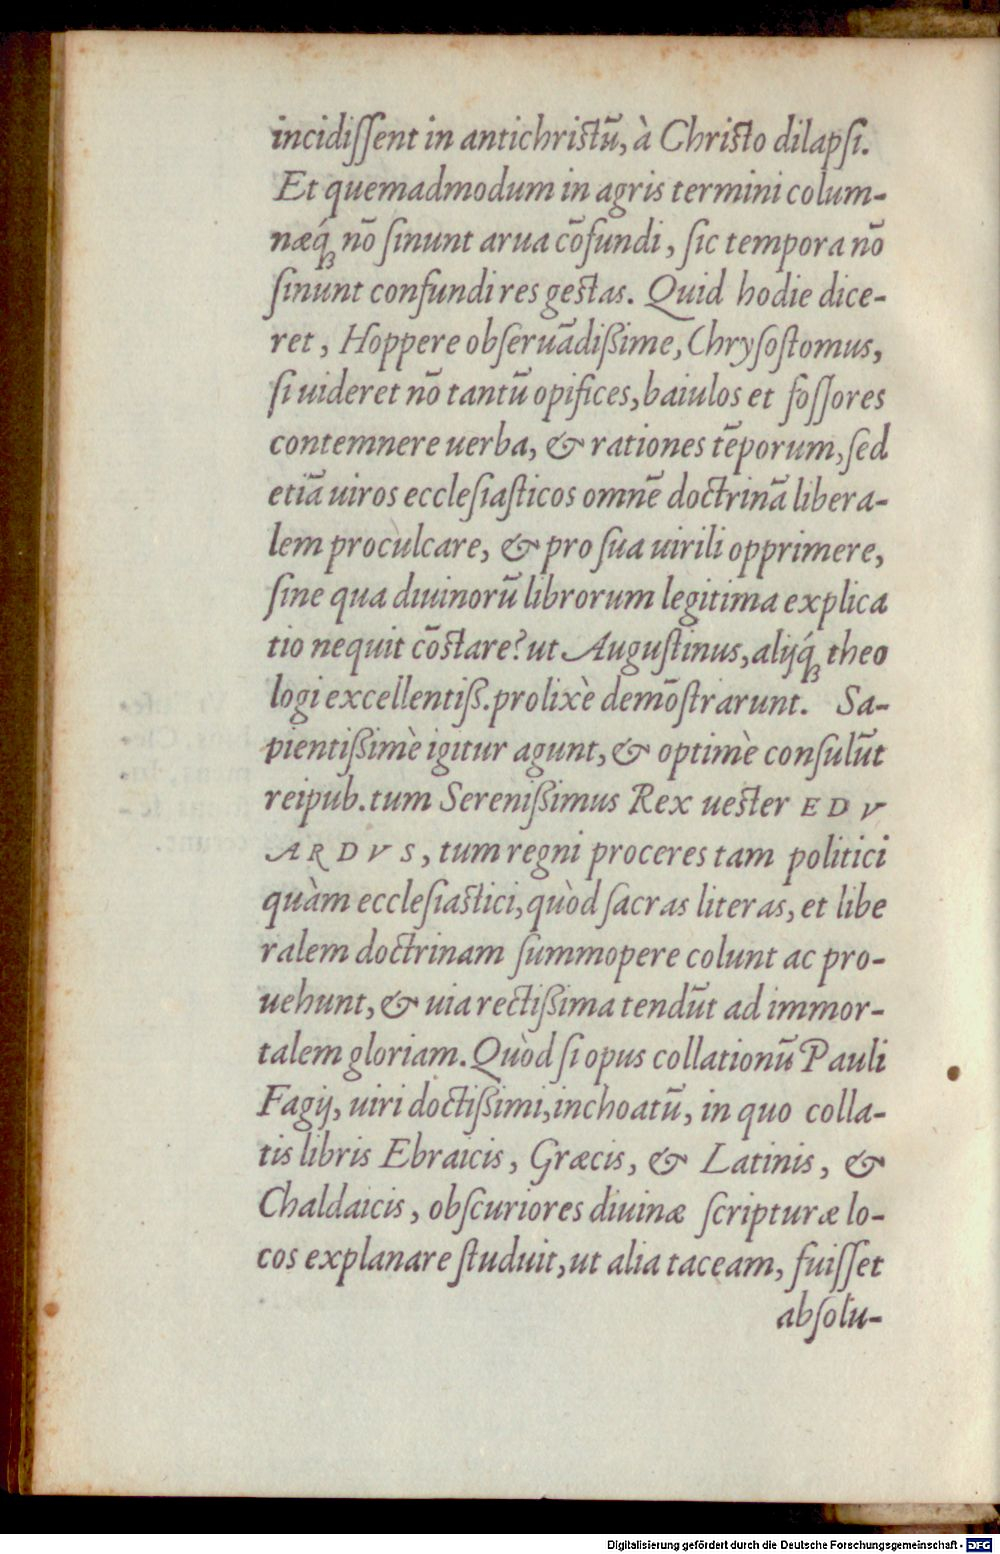 incidiſſent in antichristū, à Christo dilapſi.
Et quemadmodum in agris termini colum-
næq́ꝫ nō ſinunt arua cōfundi, ſic tempora nō
ſinunt confundi res gestas. Quid hodie dice-
ret, Hoppere obſeruādißime, Chryſoſtomus,
ſi uideret nō tantū opifices, baiulos et foſſores
contemnere uerba, & rationes tēporum, ſed
etiā uiros eccleſiaſticos omnē doctrinā libera-
lem proculcare, & pro ſua uirili opprimere,
ſine qua diuinorū librorum legitima explica
tio nequit cōstare? ut Auguſtinus, alijq́ꝫ theo
logi excellentiß. prolixè demōſtrarunt. Sa-
pientißimè igitur agunt, & optimè conſulūt
reipub. tum Serenißimus Rex uester EDV
ARDVS, tum regni proceres tam politici
quàm eccleſiastici, quòd ſacras literas, et libe
ralem doctrinam ſummopere colunt ac pro-
uehunt, & uia rectißima tendūt ad immor-
talem gloriam. Quòd ſi opus collationū Pauli
Fagij, uiri doctißimi, inchoatū, in quo colla-
tis libris Ebraicis, Græcis, & Latinis, &
Chaldaicis, obſcuriores diuinæ ſcripturæ lo-
cos explanare ſtuduit, ut alia taceam, fuiſſet
abſolu-
Digitalisierung gefördert durch die Deutsche Forschungsgemeinschaft - DFG